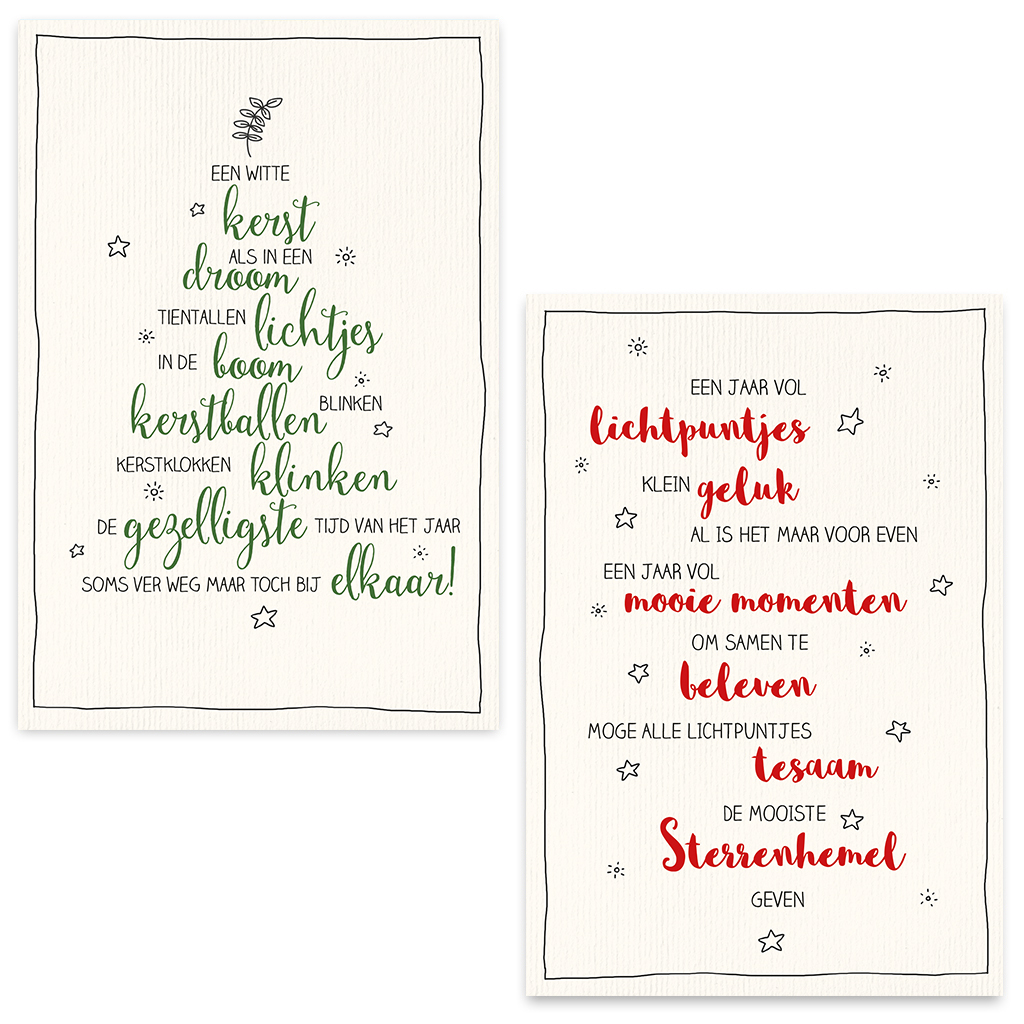 EEN WITTE
kerst
ALS IN EEN
droom
TIENTALLEN lichtjes
IN DE boom
kerstballen BLINKEN
KERSTKLOKKEN klinken
DE gezelligste TIJD VAN HET JAAR
SOMS VER WEG MAAR TOCH BIJ elkaar!
EEN JAAR VOL
lichtpuntjes
KLEIN geluk
AL IS HET MAAR VOOR EVEN
EEN JAAR VOL
mooie momenten
OM SAMEN TE
beleven
MOGE ALLE LICHTPUNTJES
tesaam
DE MOOISTE
Sterrenhemel
GEVEN